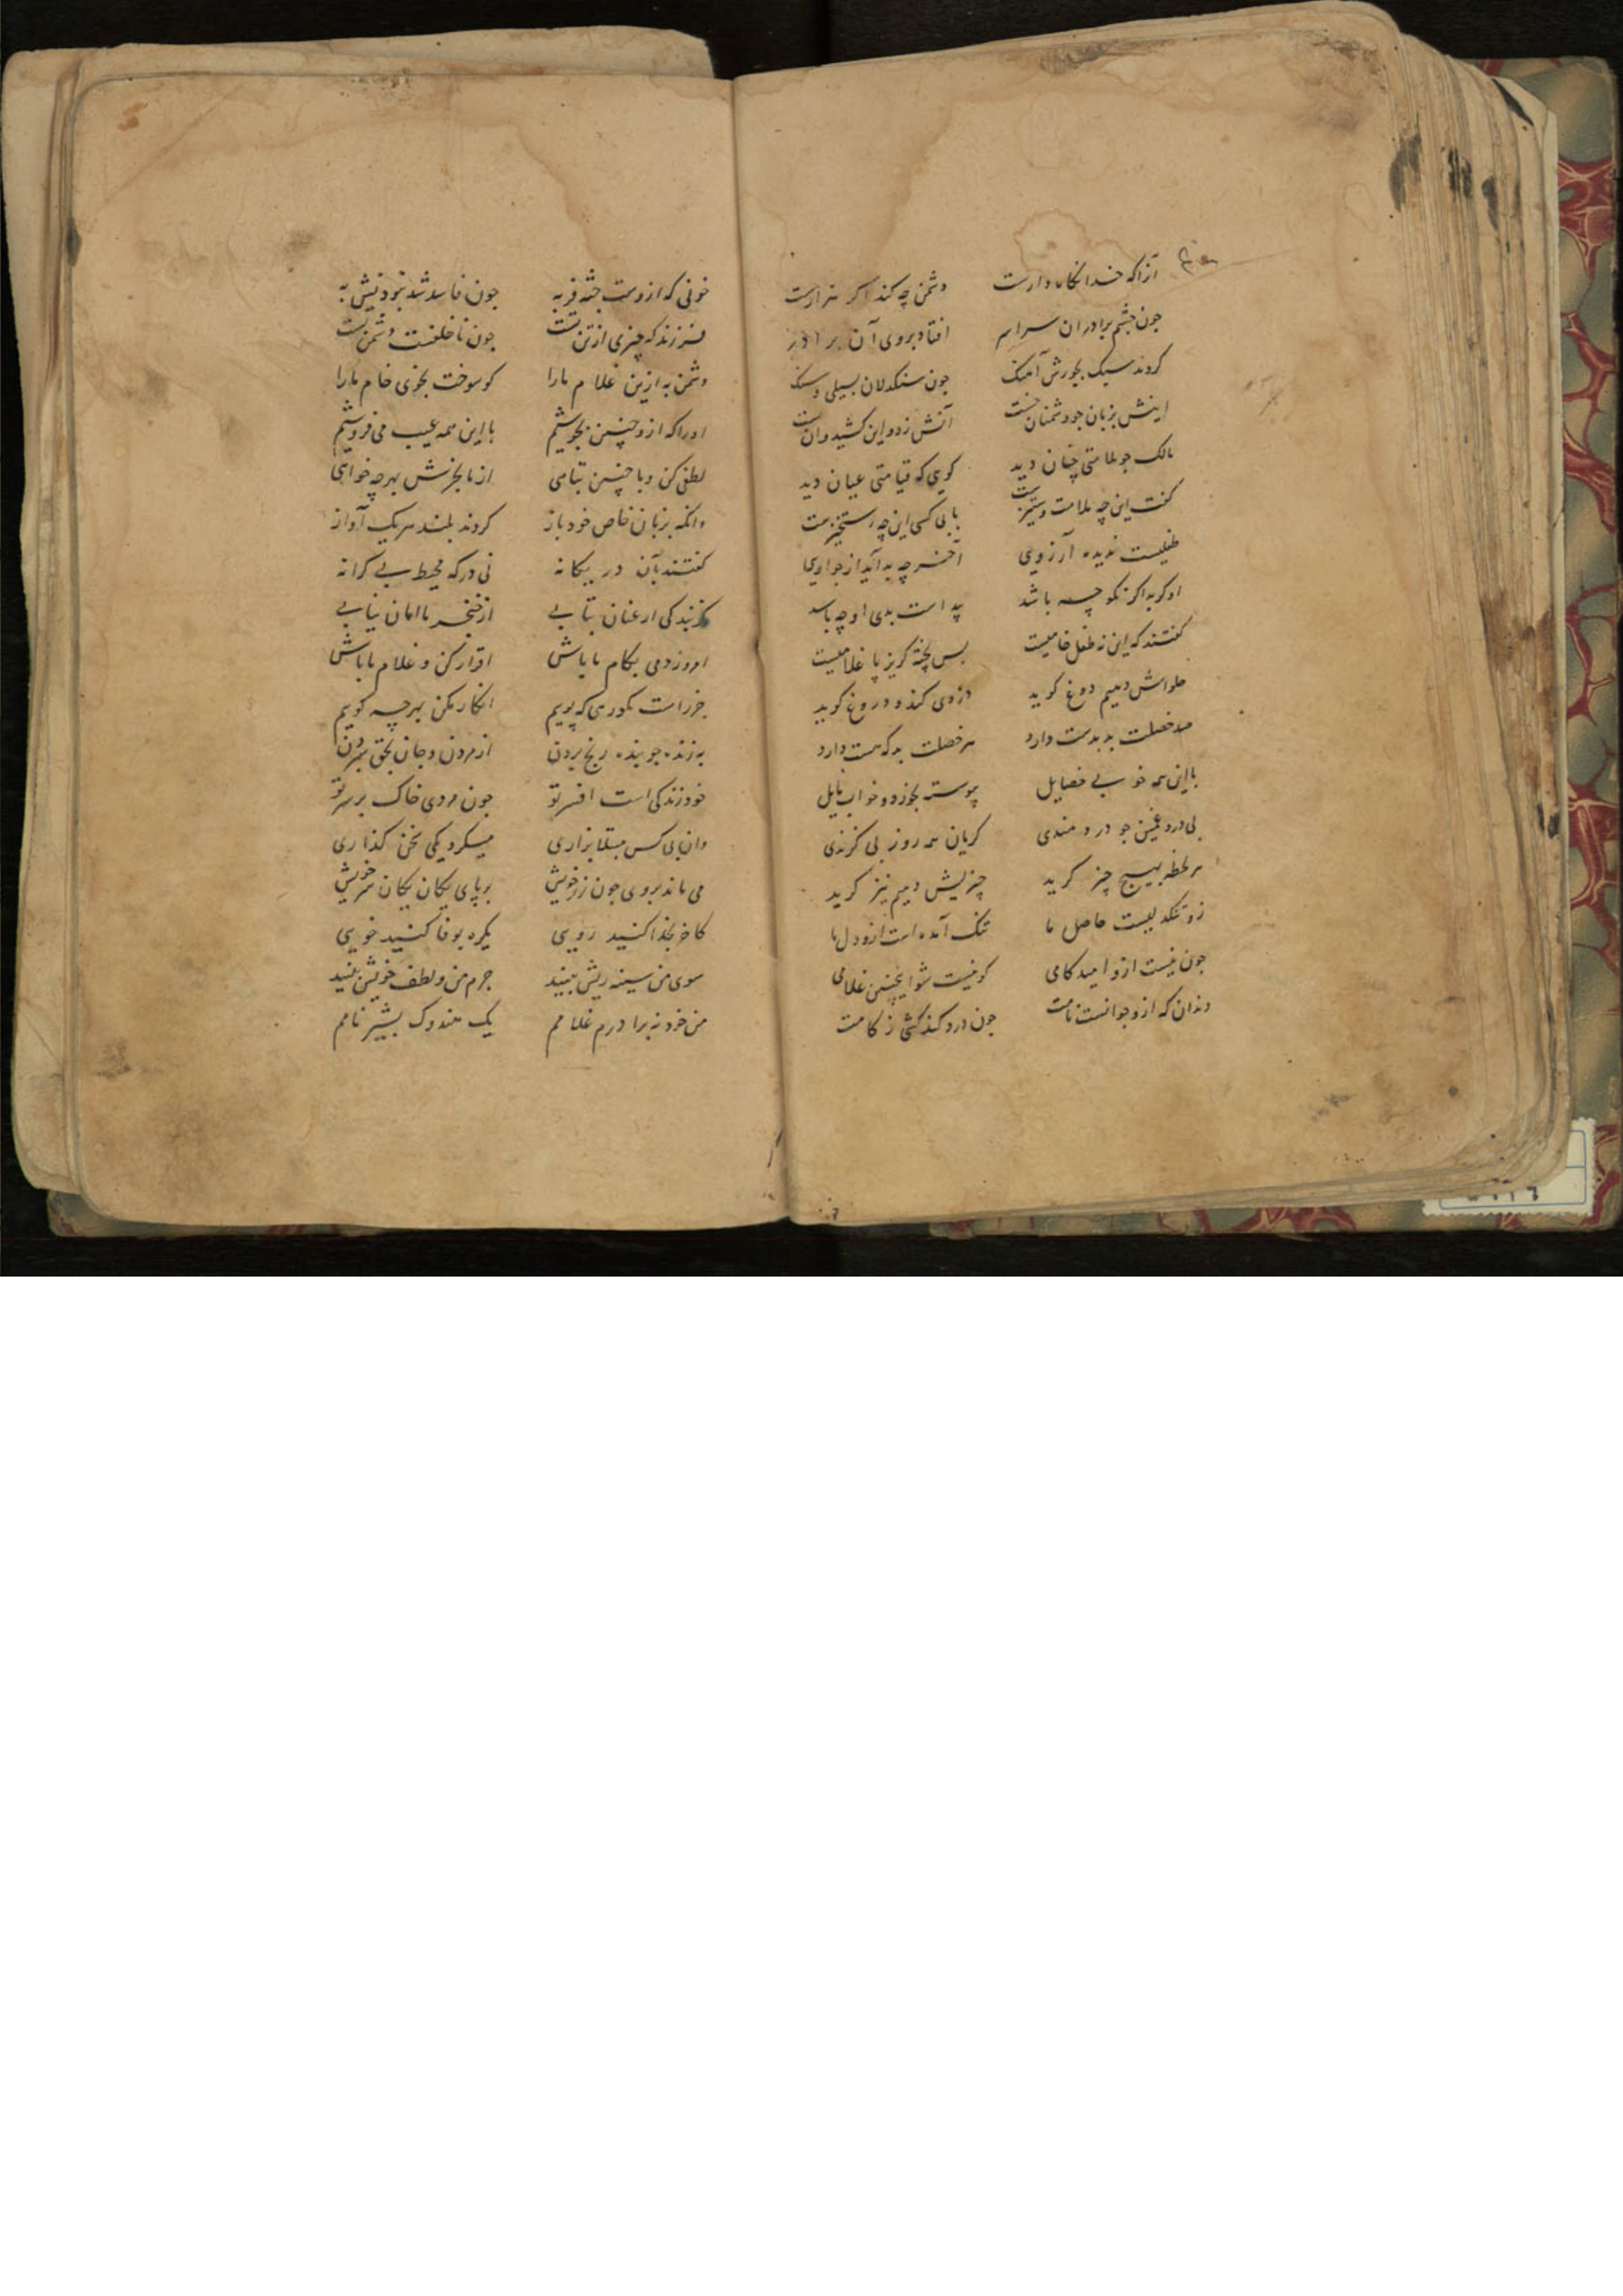 آنرا که خدا نگاهدارست دشمن چه کند اگر هزارست
جون جشم برادران سراسر افتاد بروی آن برادر
کردند سبک بجورش آهنک جون سنکدلان بسیلی و سنک
اینش بزبان جو دشمنان خست آنش زد و این کشید وان
مالک جو ملامتی چنان دید کویی که قیامتی عیان دید
کفت این چه ملامت وستیزست با بی کسی این چه رستخیزست
طفلیست ندیده آرزویی آخر چه بد آید از جو اویی
او کر بد اکر نکو چه باشد پیداست بدی او چه باشد
کفتند که این نه طفل خامیست بس پخته کریز پا غلامیست
حلواش دهیم دوغ کوید دزدی کند و دروغ کوید
صد خصلت بد بدست دارد هر خصلت بد که هست دارد
با این همه خو بی خصایل پیوسته بخورد و خواب مایل
بی درد غمین جو دردمندی کریان همه روز بی کزندی
هر لحظه بهیچ چیز کرید چیزیش دهیم نیز کرید
زو تنکدلیست حاصل ما تنک آمده است ازو دل ما
جون نیست ازو امید کامی کو نیست شو اینچنین غلامی
دندان که ازو جوانست نامت جون درد کند کشی ز کامت
خونی که ازوست جثه فربه جون فاسد شد نبود نیش به
فرزند که چیزی از تن تست جون ناخلفست دشمن تست
دشمن به ازین غلام ما را کو سوخت بخوی خام ما را
اورا که ازو چنین بجوشیم با این همه عیب می فروشیم
لطفی کن و با چنین تباهی از ما بخرش بهرچه خواهی
وانکه بزبان خاص خود باز کردند بلند هریک آواز
کفتند بآن در یکانه نی در که محیط بی کرانه
کز بندکی ار عنان بتابی از خنجر ما امان نیابی
امروز دمی بکام ما باش اقرار کن و غلام ما باش
جز راست مکو رهی که پوییم انکار مکن بهرچه کوییم
به زنده جو بنده رنج بردن از مردن و جان بحق سپردن
خود زندکی است افسر تو جون مردی خاک بر سر تو
وان بی کس مبتلا بزاری میکرد یکی سخن کذاری
می ماند بروی جون زر خویش بر پای یکان یکان سر خویش
کاخر بخدا کنید رویی یکره بوفا کنید خویی
سوی من سینه ریش بینید جرم من و لطف خویش بینید
من خود نه برادرم غلامم یک هندوک بشیر نامم